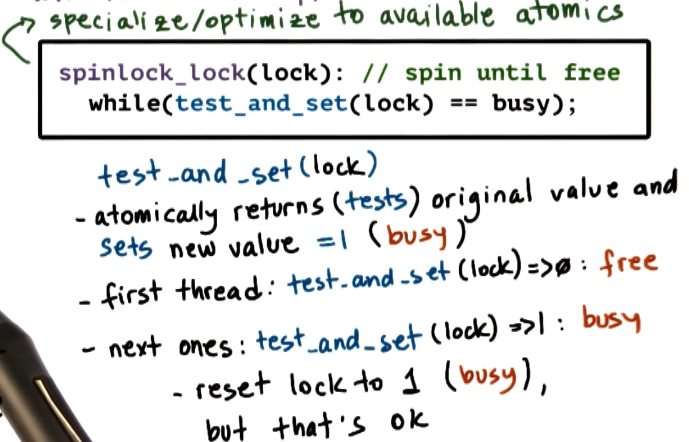 specialize/optimize to available atomics
spinlock_lock(lock): // spin until free
while(test_and_set(lock) == busy);
test_and_set(lock)
- atomically returns (tests) original value and
sets new value =1 (busy)
- first thread: test_and_set(lock)=>0 : free
- next ones: test_and_set(lock) =>1 : busy
- reset lock to 1 (busy),
but that's ok